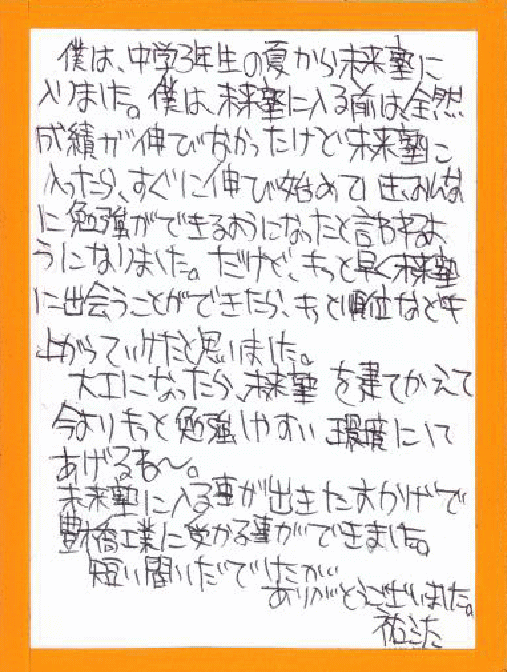 僕は、中学3年生の夏から未来塾に
入りました。僕は、未来塾に入る前は、全然
成績が伸びなかったけど未来塾に
入ったら、すぐに伸び始めて、みんな
に勉強ができるようになったと言われるよ
うになりました。だけど、もっと早く未来塾
に出会うことができたら、もっと順位なども
上がっていけたと思いました。
大工になったら、未来塾を建てかえて
今よりもっと勉強しやすい環境にして
あげるね〜。
未来塾に入る事が出来たおかげで
豊橋工業に受かる事ができました。
短い間いだでしたが
ありがとうございました。